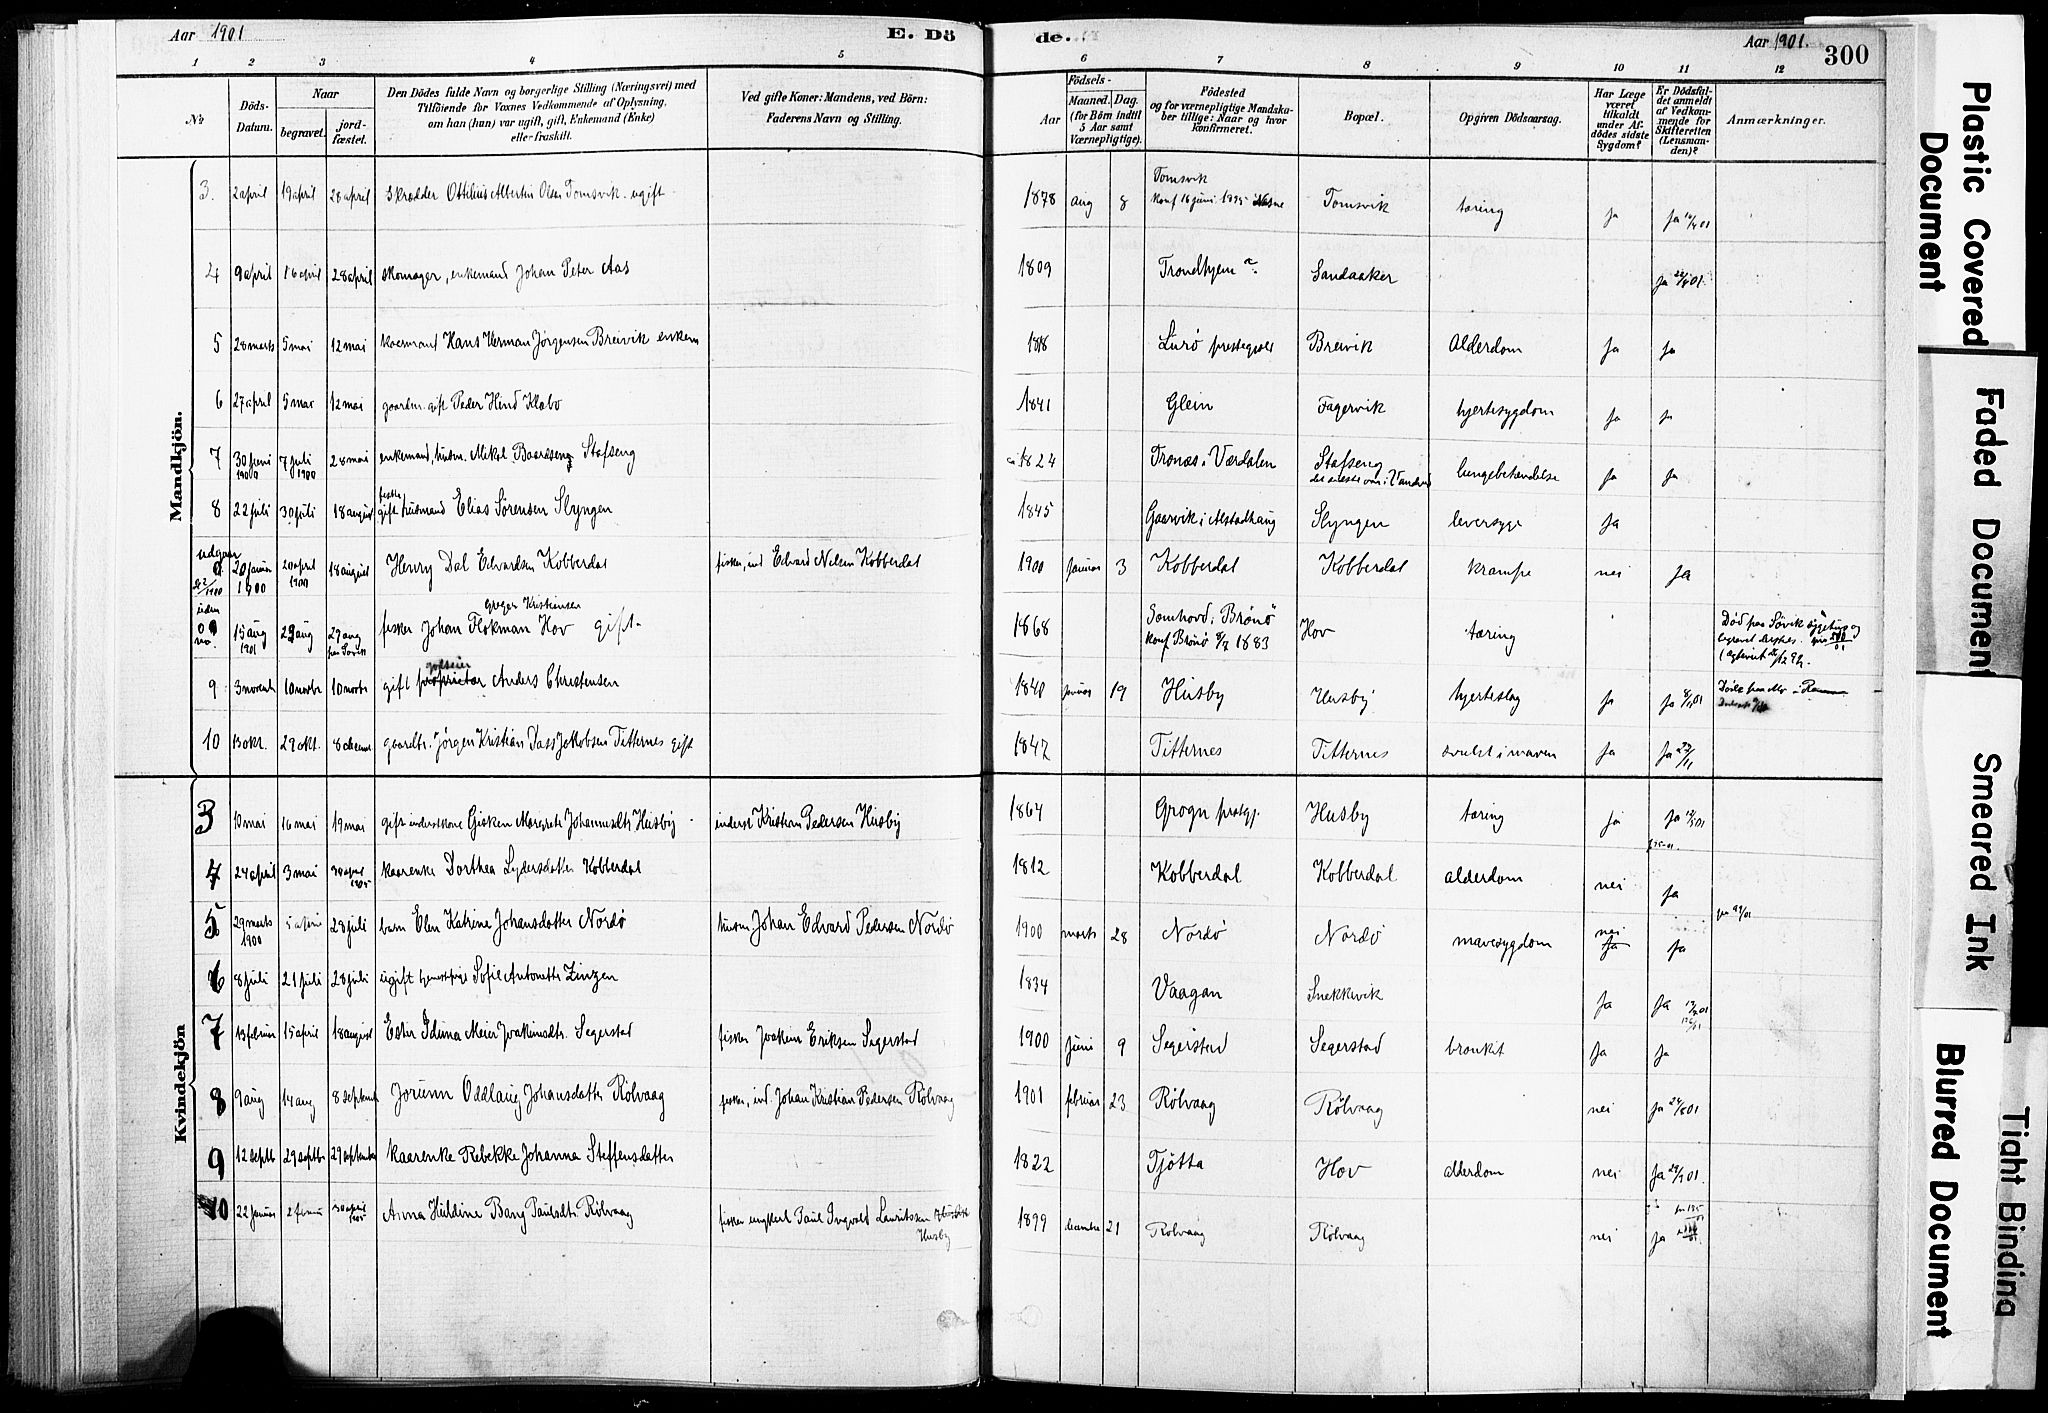 Aar 1901
E. Dö
de.
Aar 1901.
300
1 2 3 4 5 6 7 8 9 10 11 12
№
Döds-Datum.
Naar
begravet.
jord-fæstet.
Den Dödes fulde Navn og borgerlige Stilling (Næringsvei) med
Tilföiende for Voxnes Vedkommende af Oplysning,
om han (hun) var ugift, gift, Enkemand (Enke)
eller fraskilt.
Ved gifte Koner: Mandens, ved Börn:
Faderens Navn og Stilling.
Födsels-
Aar
Maaned. Dag.
(for Börn indtil
5 Aar samt
Værnepligtige).
Födested
og for værnepligtige Mandska-
ber tillige: Naar og hvor
konfirmeret.
Bopæl.
Opgiven Dödsaarsag.
Har Læge
været
tilkaldt
under Af-
dödes sidste
Sygdom?
Er Dödsfal-
det anmeldt
af Vedkom-
mende for
Skifteretten
(Lensman-
den)?
Anmærkninger.
Mandkjön.
3. 2 april 19 april 28 april Skrædder Ottilius Albertin Olsen Tomsvik. ugift 1878 aug 8 Tomsvik konf 16 juni 1895 Tomsvik tæring ja ja
4 9 april 16 april 28 april skomager, enkemand Johan Peter Aas 1809 Trondhjem Sandaaker ja
5 28 marts 5 mai 12 mai kaarmand Hans Herman Jørgensen Breivik enkem 1818 Lurø prestegjeld Breivik Alderdom ja ja
6 27 april 5 mai 12 mai gaardm. gift Peder Hind Klæbo 1841 Glein Fagervik hjertesygdom ja ja
7 30 juni 1900 7 juli 1900 28 mai enkemand, husm. Mikal Baardseng Stafseng 1824 Tronæs i Værdalen Stafseng lungebetændelse ja ja
8 22 juli 30 juli 18 august fisker gift husmand Elias Sørensen Slyngen 1845 Gaasvik i Alstadhaug Slyngen leversyge ja
udgaar 20 januar 1900 20 april 1900 18 august Henry Dal Edvardsen Kobberdal fisker, ind Edvard Nilsen Kobberdal 1900 januar 3 Kobberdal Kobberdal krampe nei ja
uden no. 15 aug 1901 23 aug 29 aug fisker Johan Flokman Greger Kristiansen Hov gift. 1868 Somhovd i Brønø konf Brønø 8/7 1883 Hov tæring Død paa Søvik sygehus og begravet dersteds.
9 3 novemb 10 novbr 10 novbr gift proprietær Anders Christensen 1840 januar 19 Husby Husby hjerteslag ja ja 8/11 01
10 13 okt. 29 okt. gaardbr. Jørgen Kristian Dass Jakobsen Titternes gift 1847 Titternes Titternes svulst i maven ja ja 22/11
Kvindekjön
3 10 mai 16 mai 19 mai gift inderstkone Gisken Margrete Johannesdtr Husby inderst Kristian Pedersen Husby 1864 Husby tæring ja ja
4 24 april 3 mai 30 april 1905 kaarenke Dorthea Lydersdatter Kobberdal 1812 Kobberdal Kobberdal alderdom nei ja
5 29 marts 1900 28 juli barn Elen Katrine Johansdatter Nordø husm. Johan Edvard Pedersen Nordø 1900 marts 28 Nordø Nordø mavesygdom nei ja ja
6 8 juli 21 juli 28 juli ugift Sofie Antonette Zingen 1834 Vaagan Snekkvik ja ja
7 13 februar 15 april 18 august Ester Iduna Meier Joakimsdtr. Segerstad fisker Joakim Eriksen Segerstad 1900 juni 9 Segerstad Segerstad bronkit ja ja
8 9 aug 14 aug 8 septemb Jorunn Oddlaug Johansdatter Rølvaag fisker, ind. Johan Kristian Pedersen Rølvaag 1901 februar 23 Rølvaag Rølvaag nei ja
9 12 septbr 29 septbr 29 september kaarenke Rebekke Johanna Steffensdatter 1822 Tjøtta Hov alderdom nei ja 29/9 01
10 22 januar 30 april 1905 Anna Huldine Bang Paulsdtr. Rølvaag fisker ungkarl Paul Ingvald Lauritssen Husby 1899 21 Rølvaag Rølvaag nei ja
Plastic Covered Document
Faded Document
Smeared Ink
Blurred Document
Tight Binding